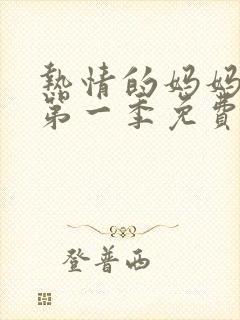 热情的妈妈
第一季免費
登普西